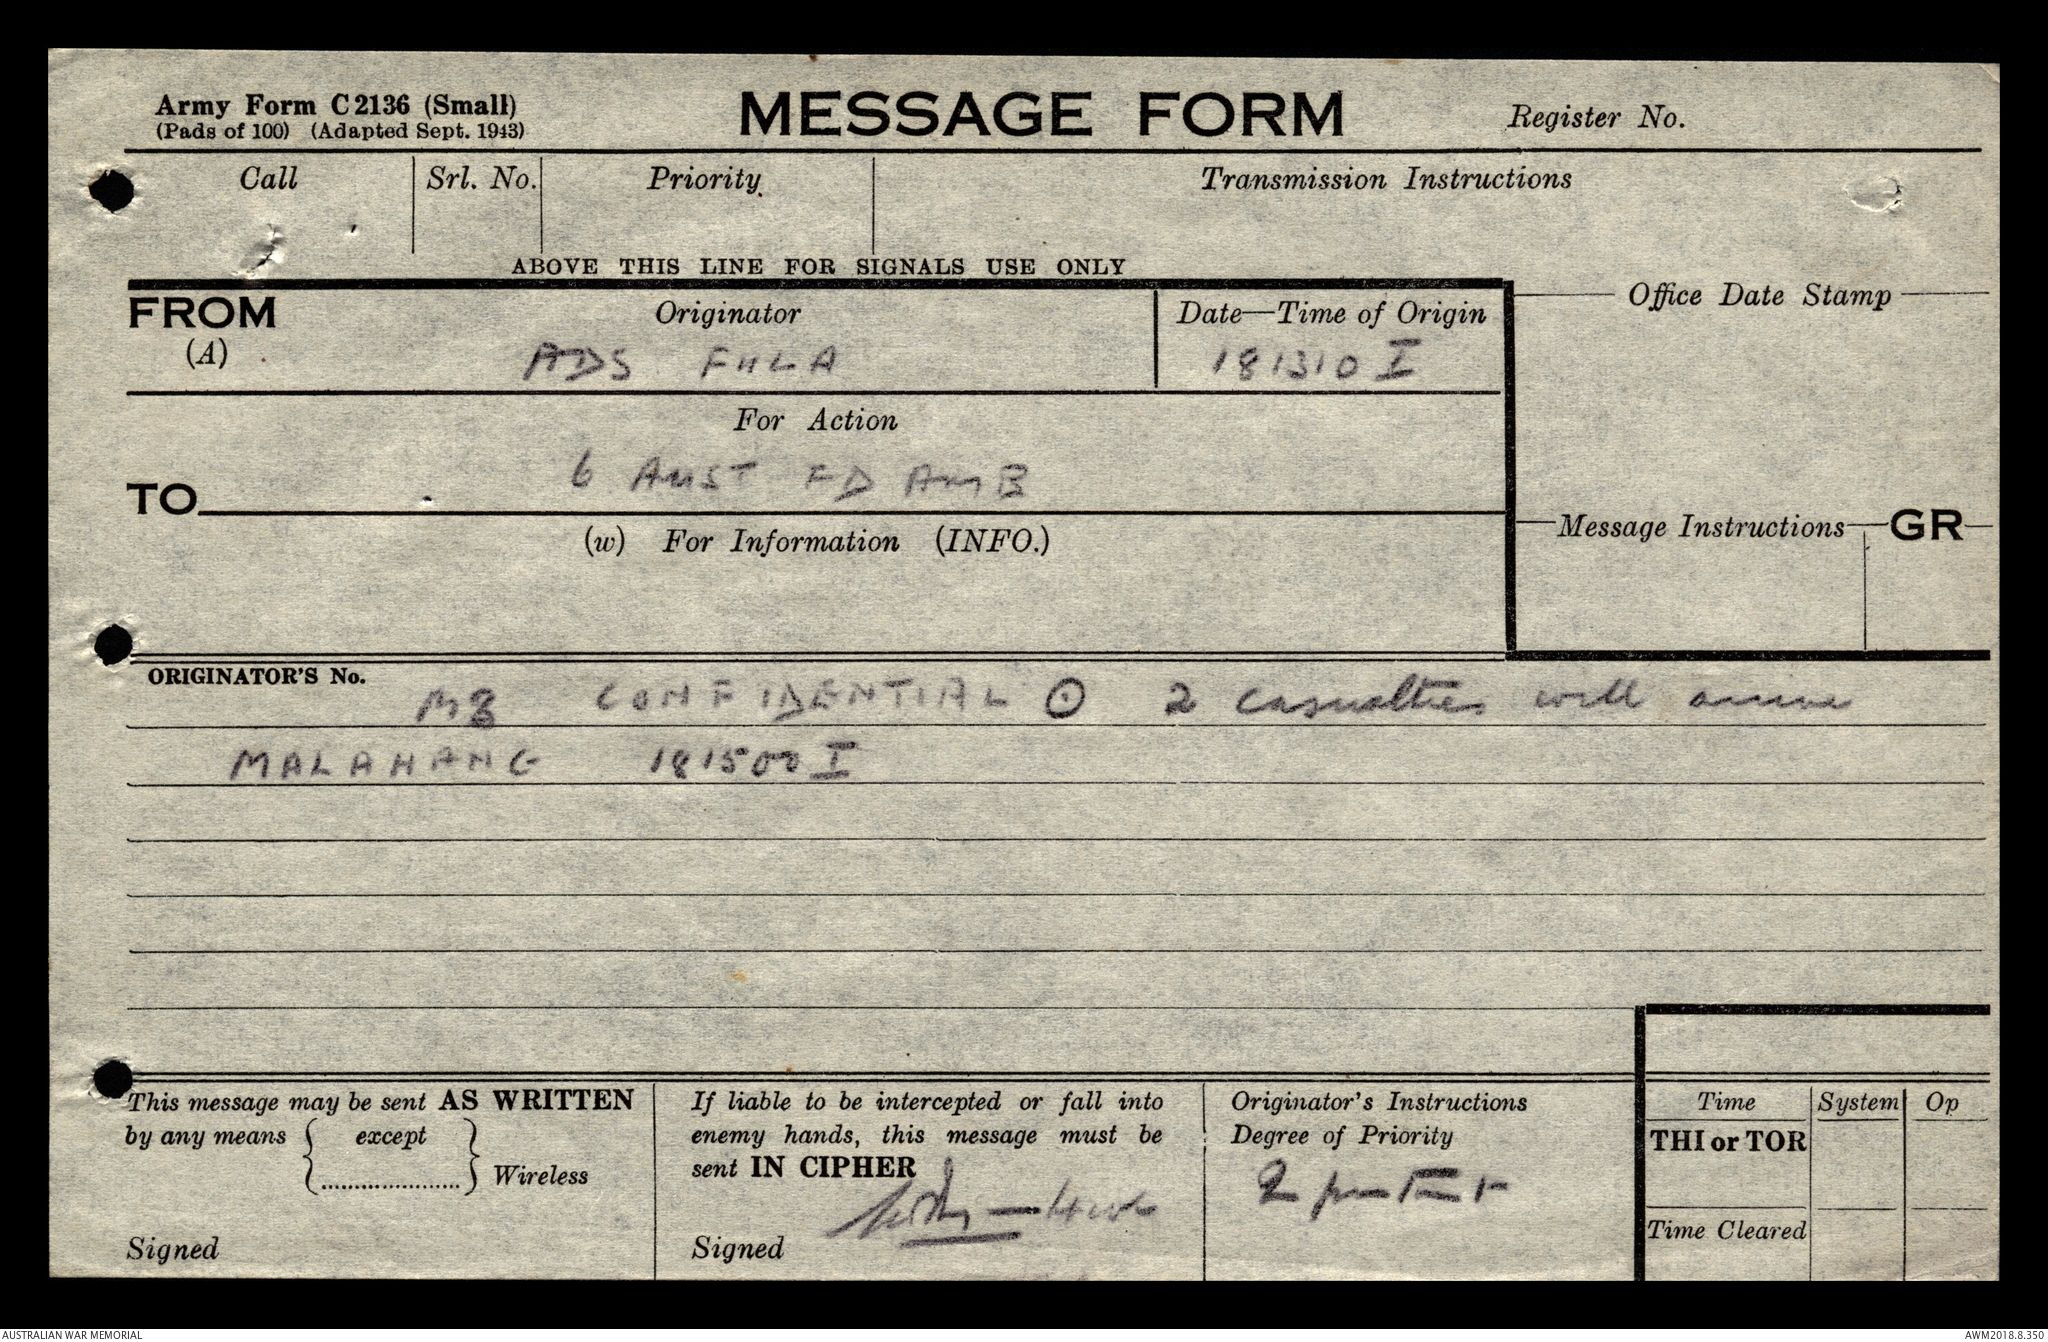 Army Form C2136 (Small)
(Pads of 100) (Adapted Sept. 1943)
MESSAGE FORM
Register No.
Call
Srl. No.
Priority
Transmission Instructions
ABOVE THIS LINE FOR SIGNALS USE ONLY
FROM
(A)
Originator
ADS
Date—Time of Origin
181310 I
Office Date Stamp
For Action
6 AUST FD AMB
TO
(w) For Information (INFO.)
Message Instructions
GR
ORIGINATOR'S No.
CONFIDENTIAL ⊙ 2 casualties will arrive
MALAHANG 181500 I
This message may be sent AS WRITTEN
by any means { except
....................... } Wireless
Signed
If liable to be intercepted or fall into
enemy hands, this message must be
sent IN CIPHER
Signed
Originator's Instructions
Degree of Priority
Important
Time
System
Op
THI or TOR
Time Cleared
AUSTRALIAN WAR MEMORIAL
AWM2018.8.350